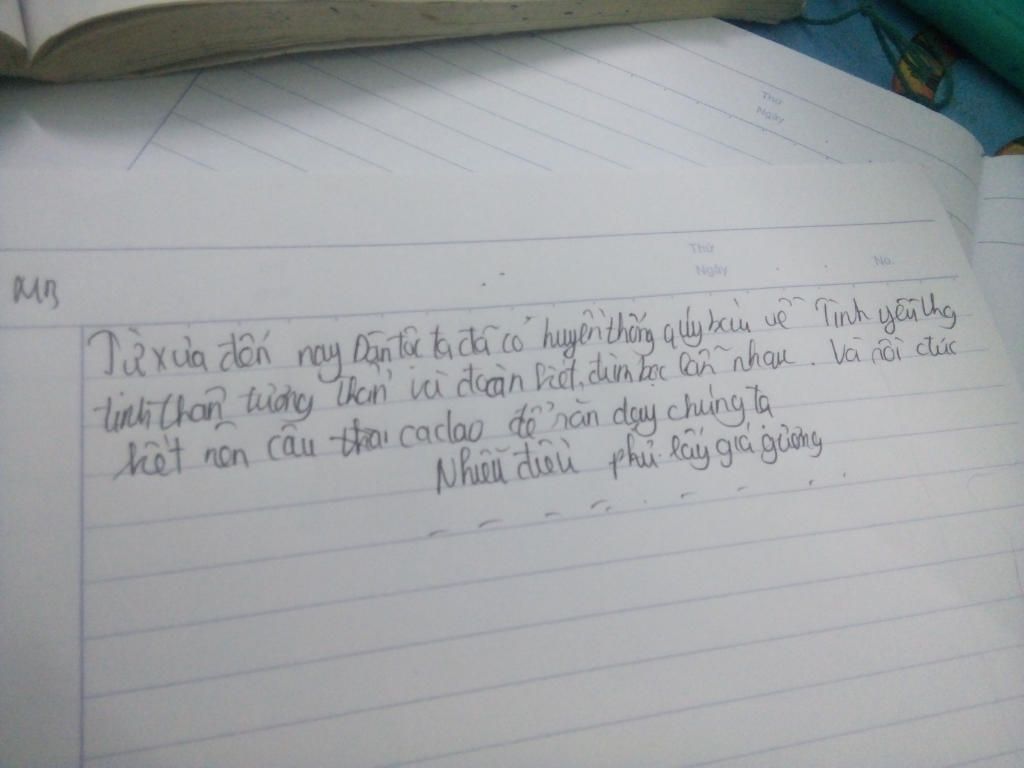 Thứ
Ngày
Thứ
Ngày
No.
MB
Từ xưa đến nay Dân tộc ta đã có truyền thống quý báu về Tình yêu thg
tinh thần tương thân ái đoàn kết, đùm bọc lẫn nhau. Và nôi đúc
kết nên câu ca dao để răn dạy chúng ta
Nhiễu điều phủ lấy giá gương